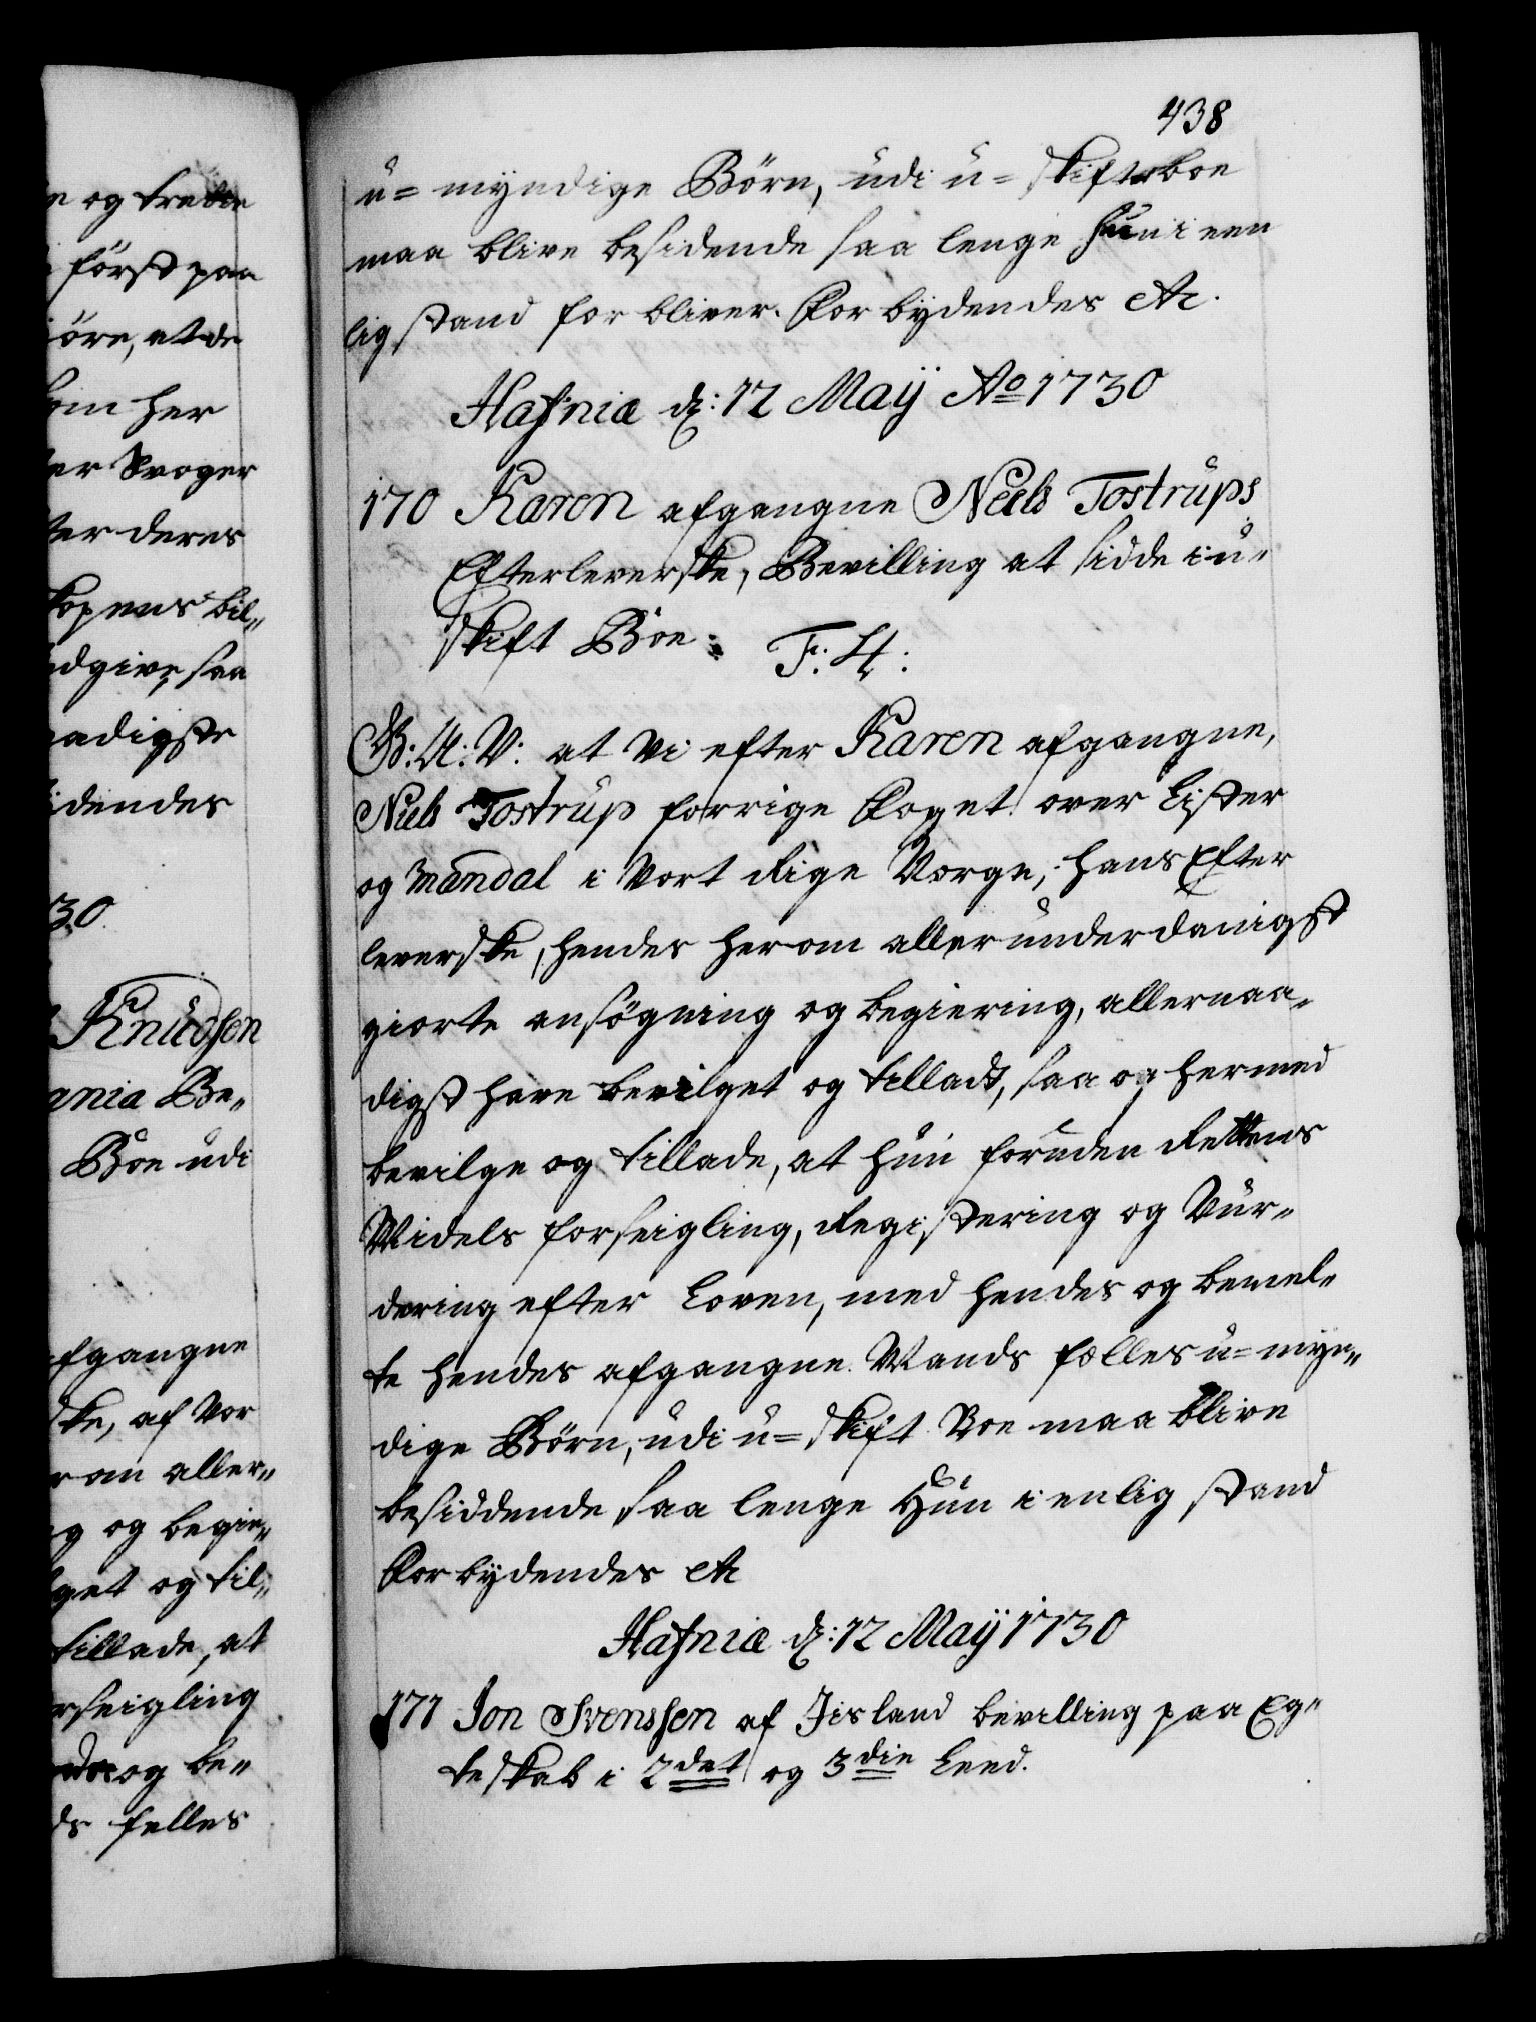 438
u= myndige Börn, udi u= skifteboe
maa blive besidende saa lenge hun i een
lig stand for bliver. Forbydendes etc.
Hafniæ d: 12 Maÿ Ao 1730
170 Karen afgangne Niels Tostrups
Efterleverske, Bevilling at sidde i u-
skift Boe: F: H:
G: A: V: at Vi efter Karen afgangne,
Niels Tostrup forrige Foget over Lister
og Mandal i Vort Rige Norge, hans Efter
leverske, hendes herom allerunderdanigst
giorte ansögning og begiering, allernaa-
digst have bevilget og tilladt, saa og hermed
bevilge og tillade, at hun foruden Rettens
Midels forseigling, Registering og Vur-
dering efter Loven, med hendes og bemel-
te hendes afgangne Mands fælles u= myn-
dige Börn, udi u= skift Boe maa blive
besiddende saa lenge Hun i enlig stand
Forbydendes etc
Hafniæ d: 12 Maÿ 1730
171 Jon Svenssen af Jisland bevilling paa Eg-
teskab i 2det og 3die Leed.
og trette
först paa
öre, at de
som her
er Svoger
ter deres
bil-
dgive, saa
naadigste
idendes
30.
Knudsen
ania Be-
Boe udi
afgangne
ske, af Vor
rom aller-
og begie-
get og til-
tillade, at
rseigling
og be-
ds felles